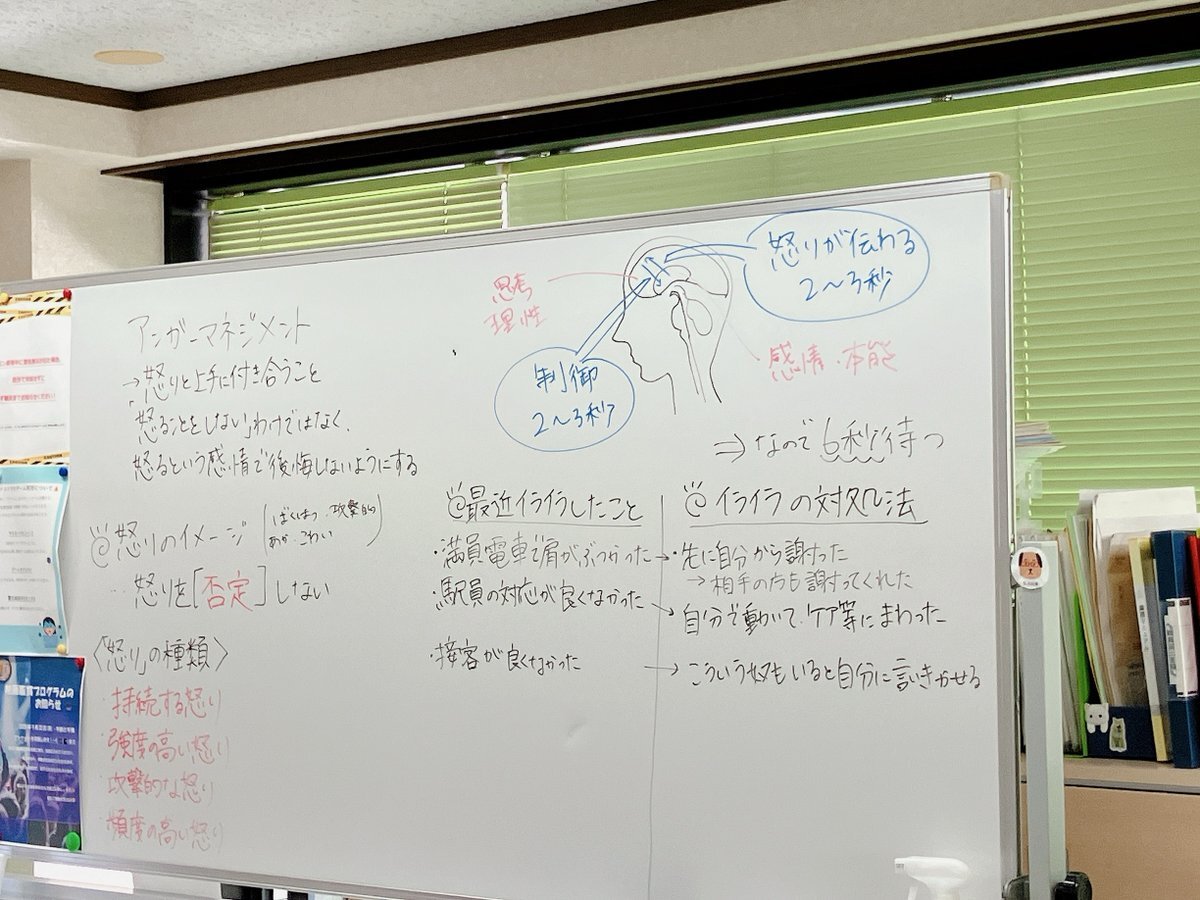 アンガーマネジメント
→怒りと上手に付き合うこと
「怒ることをしない」わけではなく、
怒るという感情で後悔しないようにする
怒りのイメージ
(ばくはつ、攻撃的
あか、こわい)
怒りを[否定]しない
〈「怒り」の種類〉
・持続する怒り
・強度の高い怒り
・攻撃的な怒り
・頻度の高い怒り
思考
理性
制御
2〜3秒
怒りが伝わる
2〜3秒
・感情・本能
⇒なので6秒待つ
最近イライラしたこと
・満員電車で肩がぶつかった→
・駅員の対応が良くなかった→
・接客が良くなかった →
イライラの対処法
・先に自分から謝った
→相手の方も謝ってくれた
自分で動いて、ケア等にまわった
こういう奴もいると自分に言いきかせる
プログラムの
お知らせ